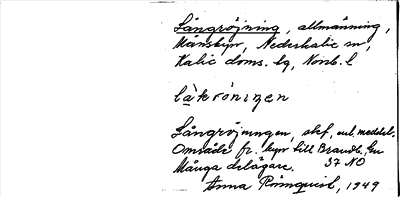 Långröjning, allmänning,
Månsbyn, Nederkalix sn,
Kalix doms. lg, Norrb. l
låkrö̀nìǥen
Långröjningen, skf, enl. meddel.
Område fr. byn till Brandb., Gen
Många delägare. 37 NO
Anna Rönnqvist, 1949